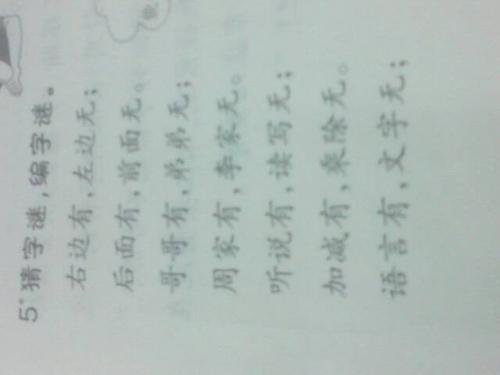 5.猜字谜，编字谜。
右边有，左边无；
后面有，前面无。
哥哥有，弟弟无；
周家有，李家无。
听说有，读写无；
加减有，乘除无。
语言有，文字无；